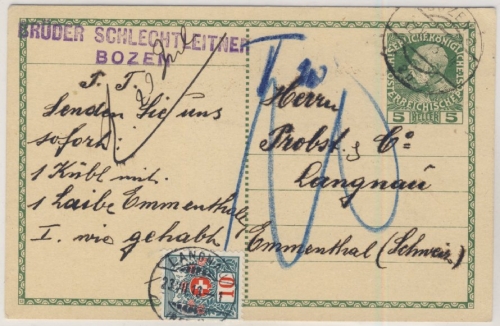 BRÜDER SCHLECHTLEITNER
BOZEN
P. T.
Senden Sie uns
sofort:
1 Kübl mit
1 Laibe Emmenthaler
I. wie gehabt
Herrn
Probst & Co
Langnau
Emmenthal (Schweiz)
5 HELLER 5
T
10
LANGNAU
10